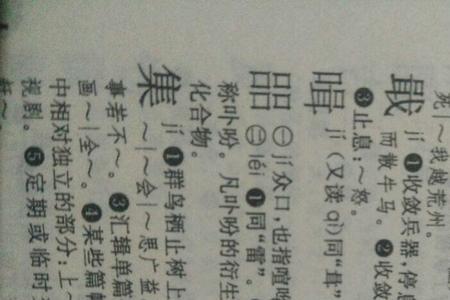 ～我越荒州。
戢 jí ❶收敛兵器,停
而散牛马。❷收敛
❸止息:～怒。
jí (又读 qì)同
㗊 ㊀jí众口,也指喧
㊁léi ❶同“雷”。
称卟吩。凡卟吩的衍生
化合物。
集 jí ❶群鸟栖止树上
～|～会|～思广益
事若不～。❸汇辑单篇
画～|全～。❹某些篇
中相对独立的部分:上～
视剧。❺定期或临时